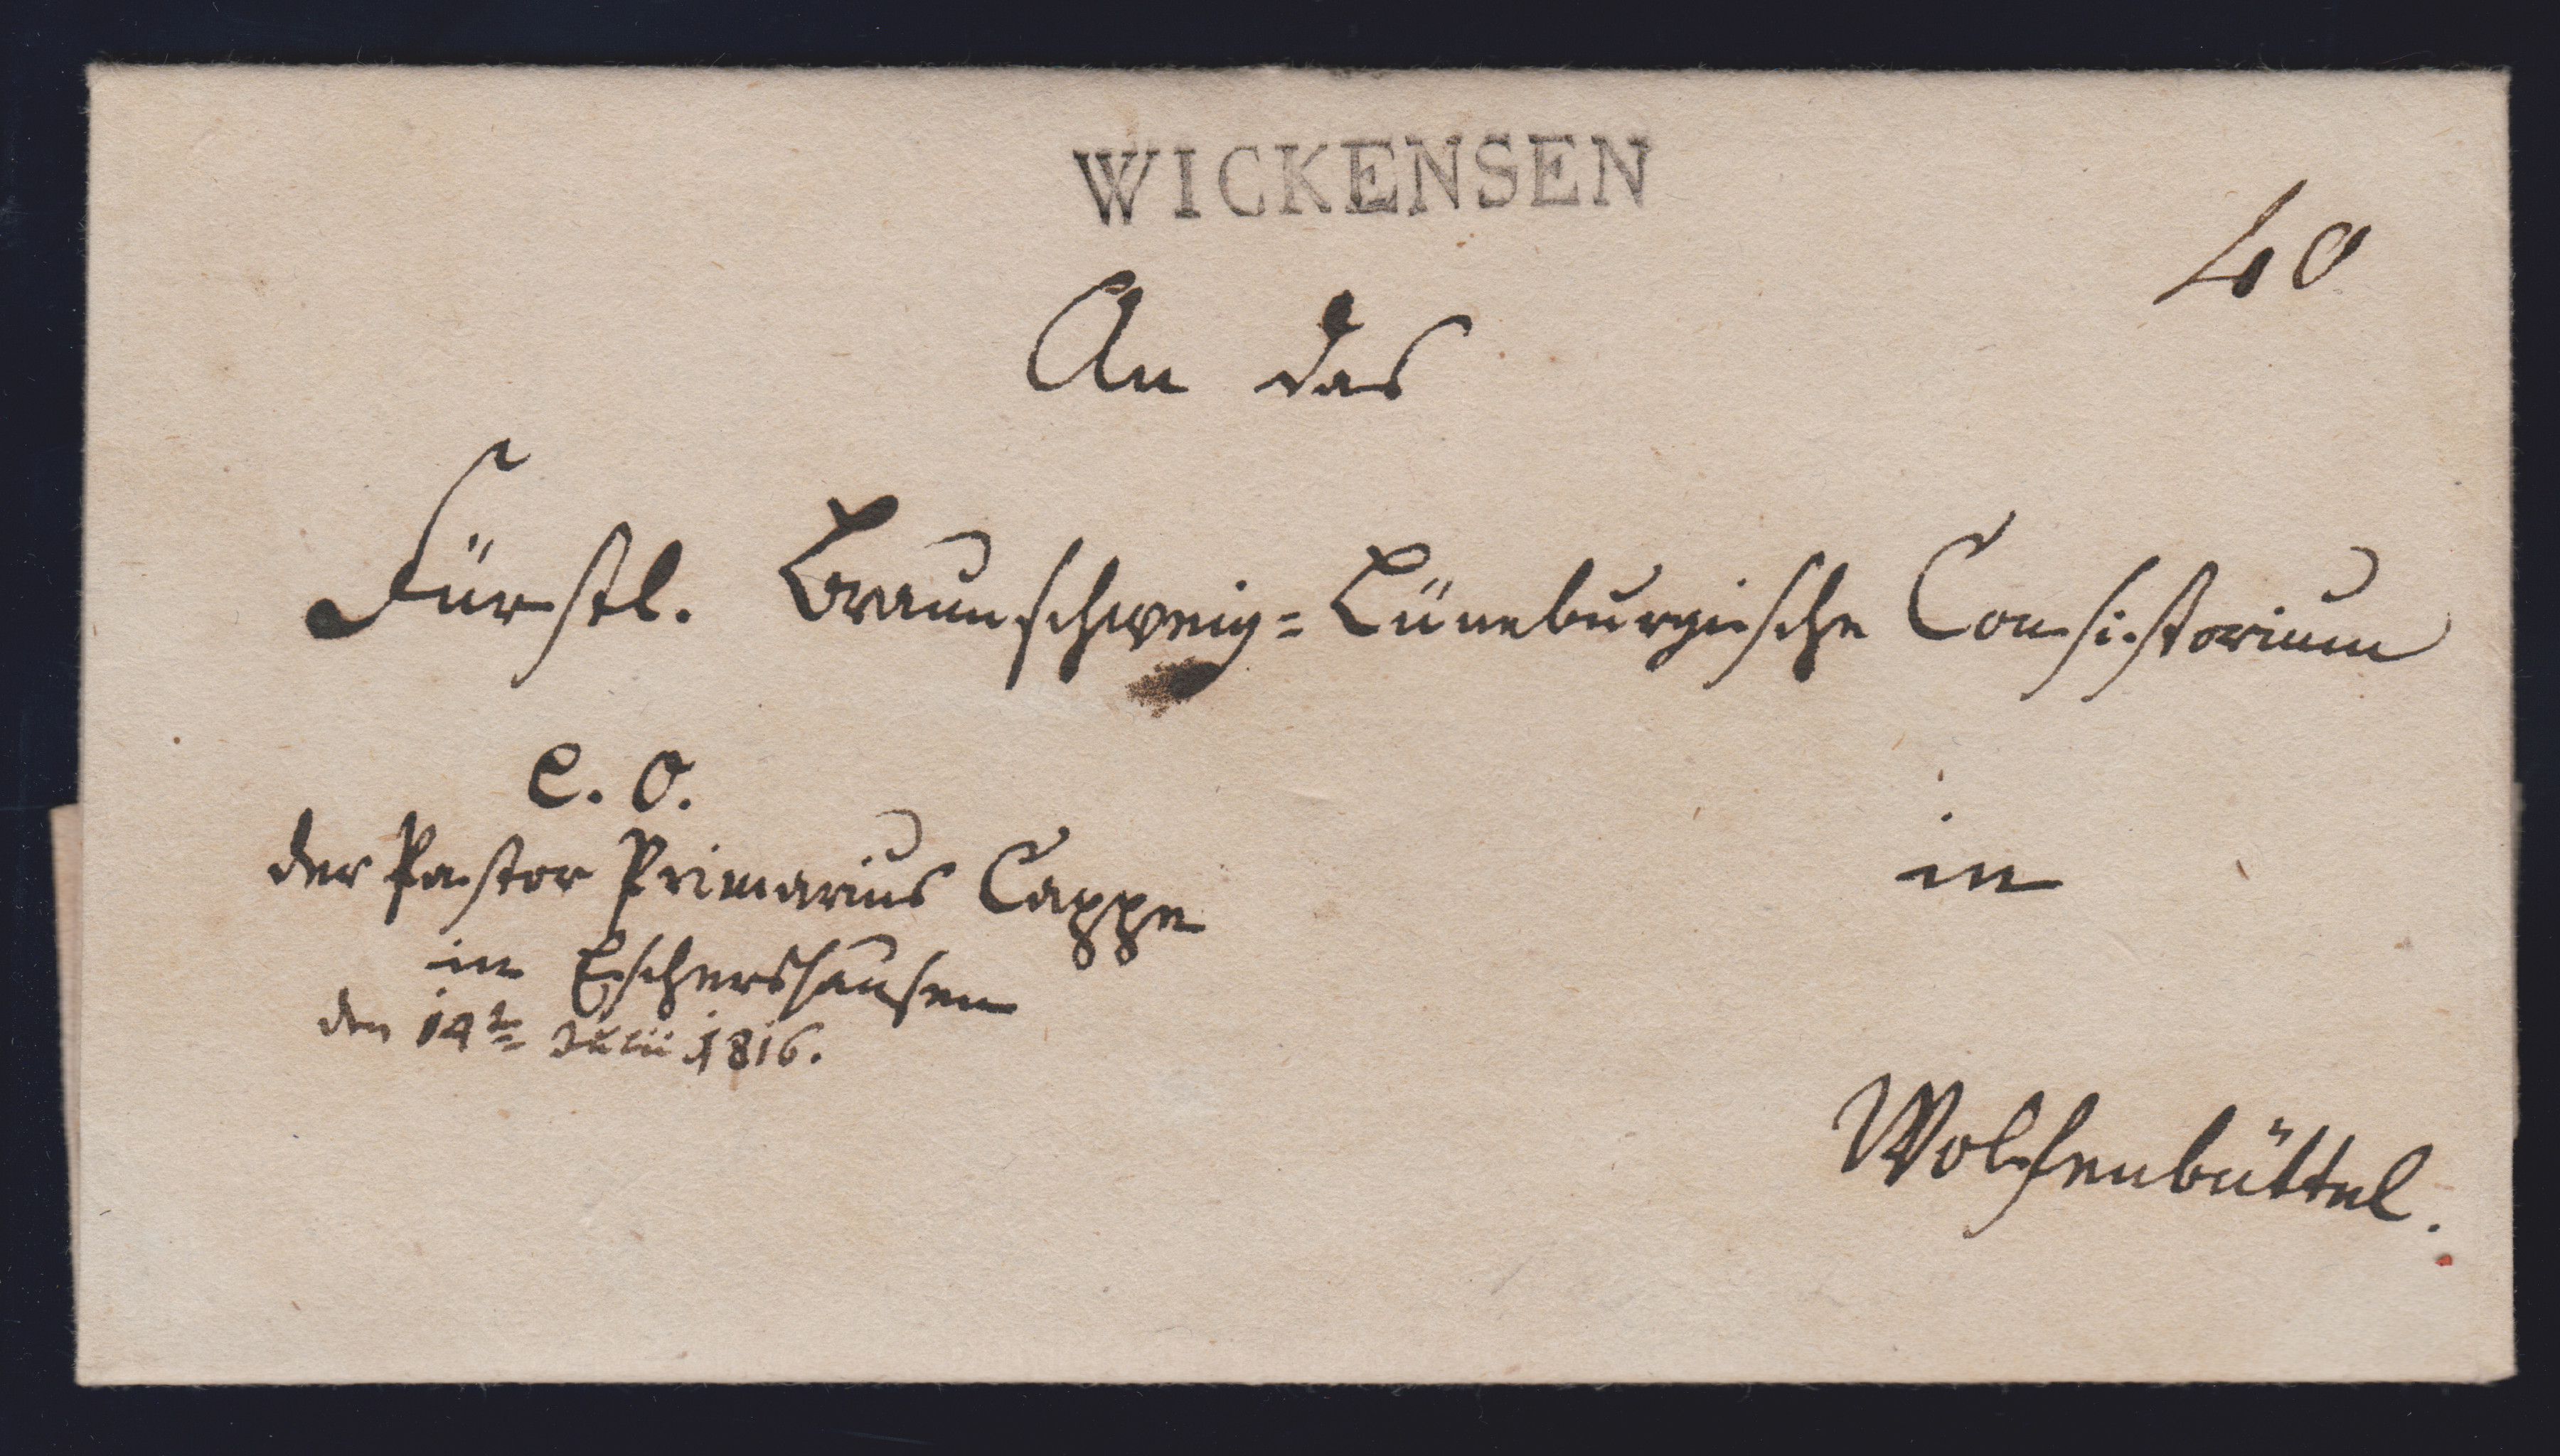 WICKENSEN
40
An das
Fürstl. Braunschweig=Lüneburgische Consistorium
C. O.
der Pastor Primarius Cappe
in Eschershausen
den 14t Julii 1816.
in
Wolfenbüttel.